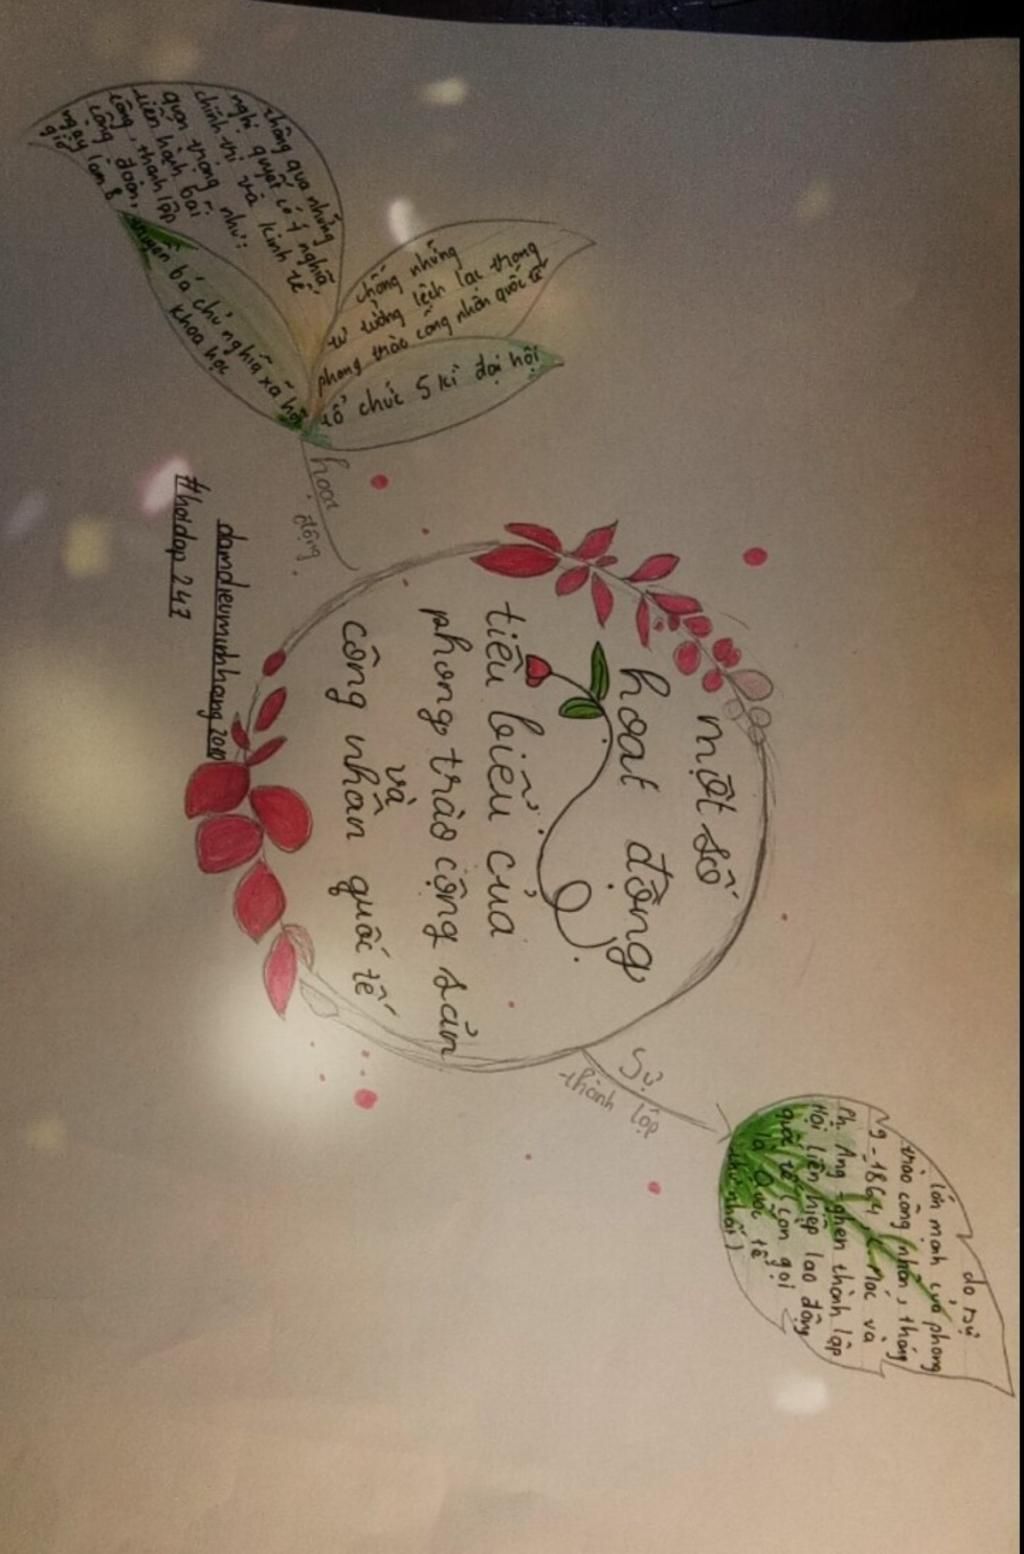 một số
hoạt động
tiêu biểu của
phong trào cộng sản
và
công nhân quốc tế
Sự
thành lập
do sự
lớn mạnh của phong
trào công nhân, tháng
9-1864, C.Mác và
Ph. Ăng-ghen thành lập
Hội liên hiệp lao động
quốc tế (còn gọi
là Quốc tế
thứ nhất)
hoạt
động
tổ chức 5 kì đại hội
chống những
tư tưởng lệch lạc trong
phong trào công nhân quốc tế
thông qua những
nghị quyết có ý nghĩa
chính trị và kinh tế
quan trọng như:
tiến hành bãi
công, thành lập
công đoàn,
ngày làm 8
giờ
truyền bá chủ nghĩa xã hội
khoa học
damdieuminhhang2010
#hoidap247